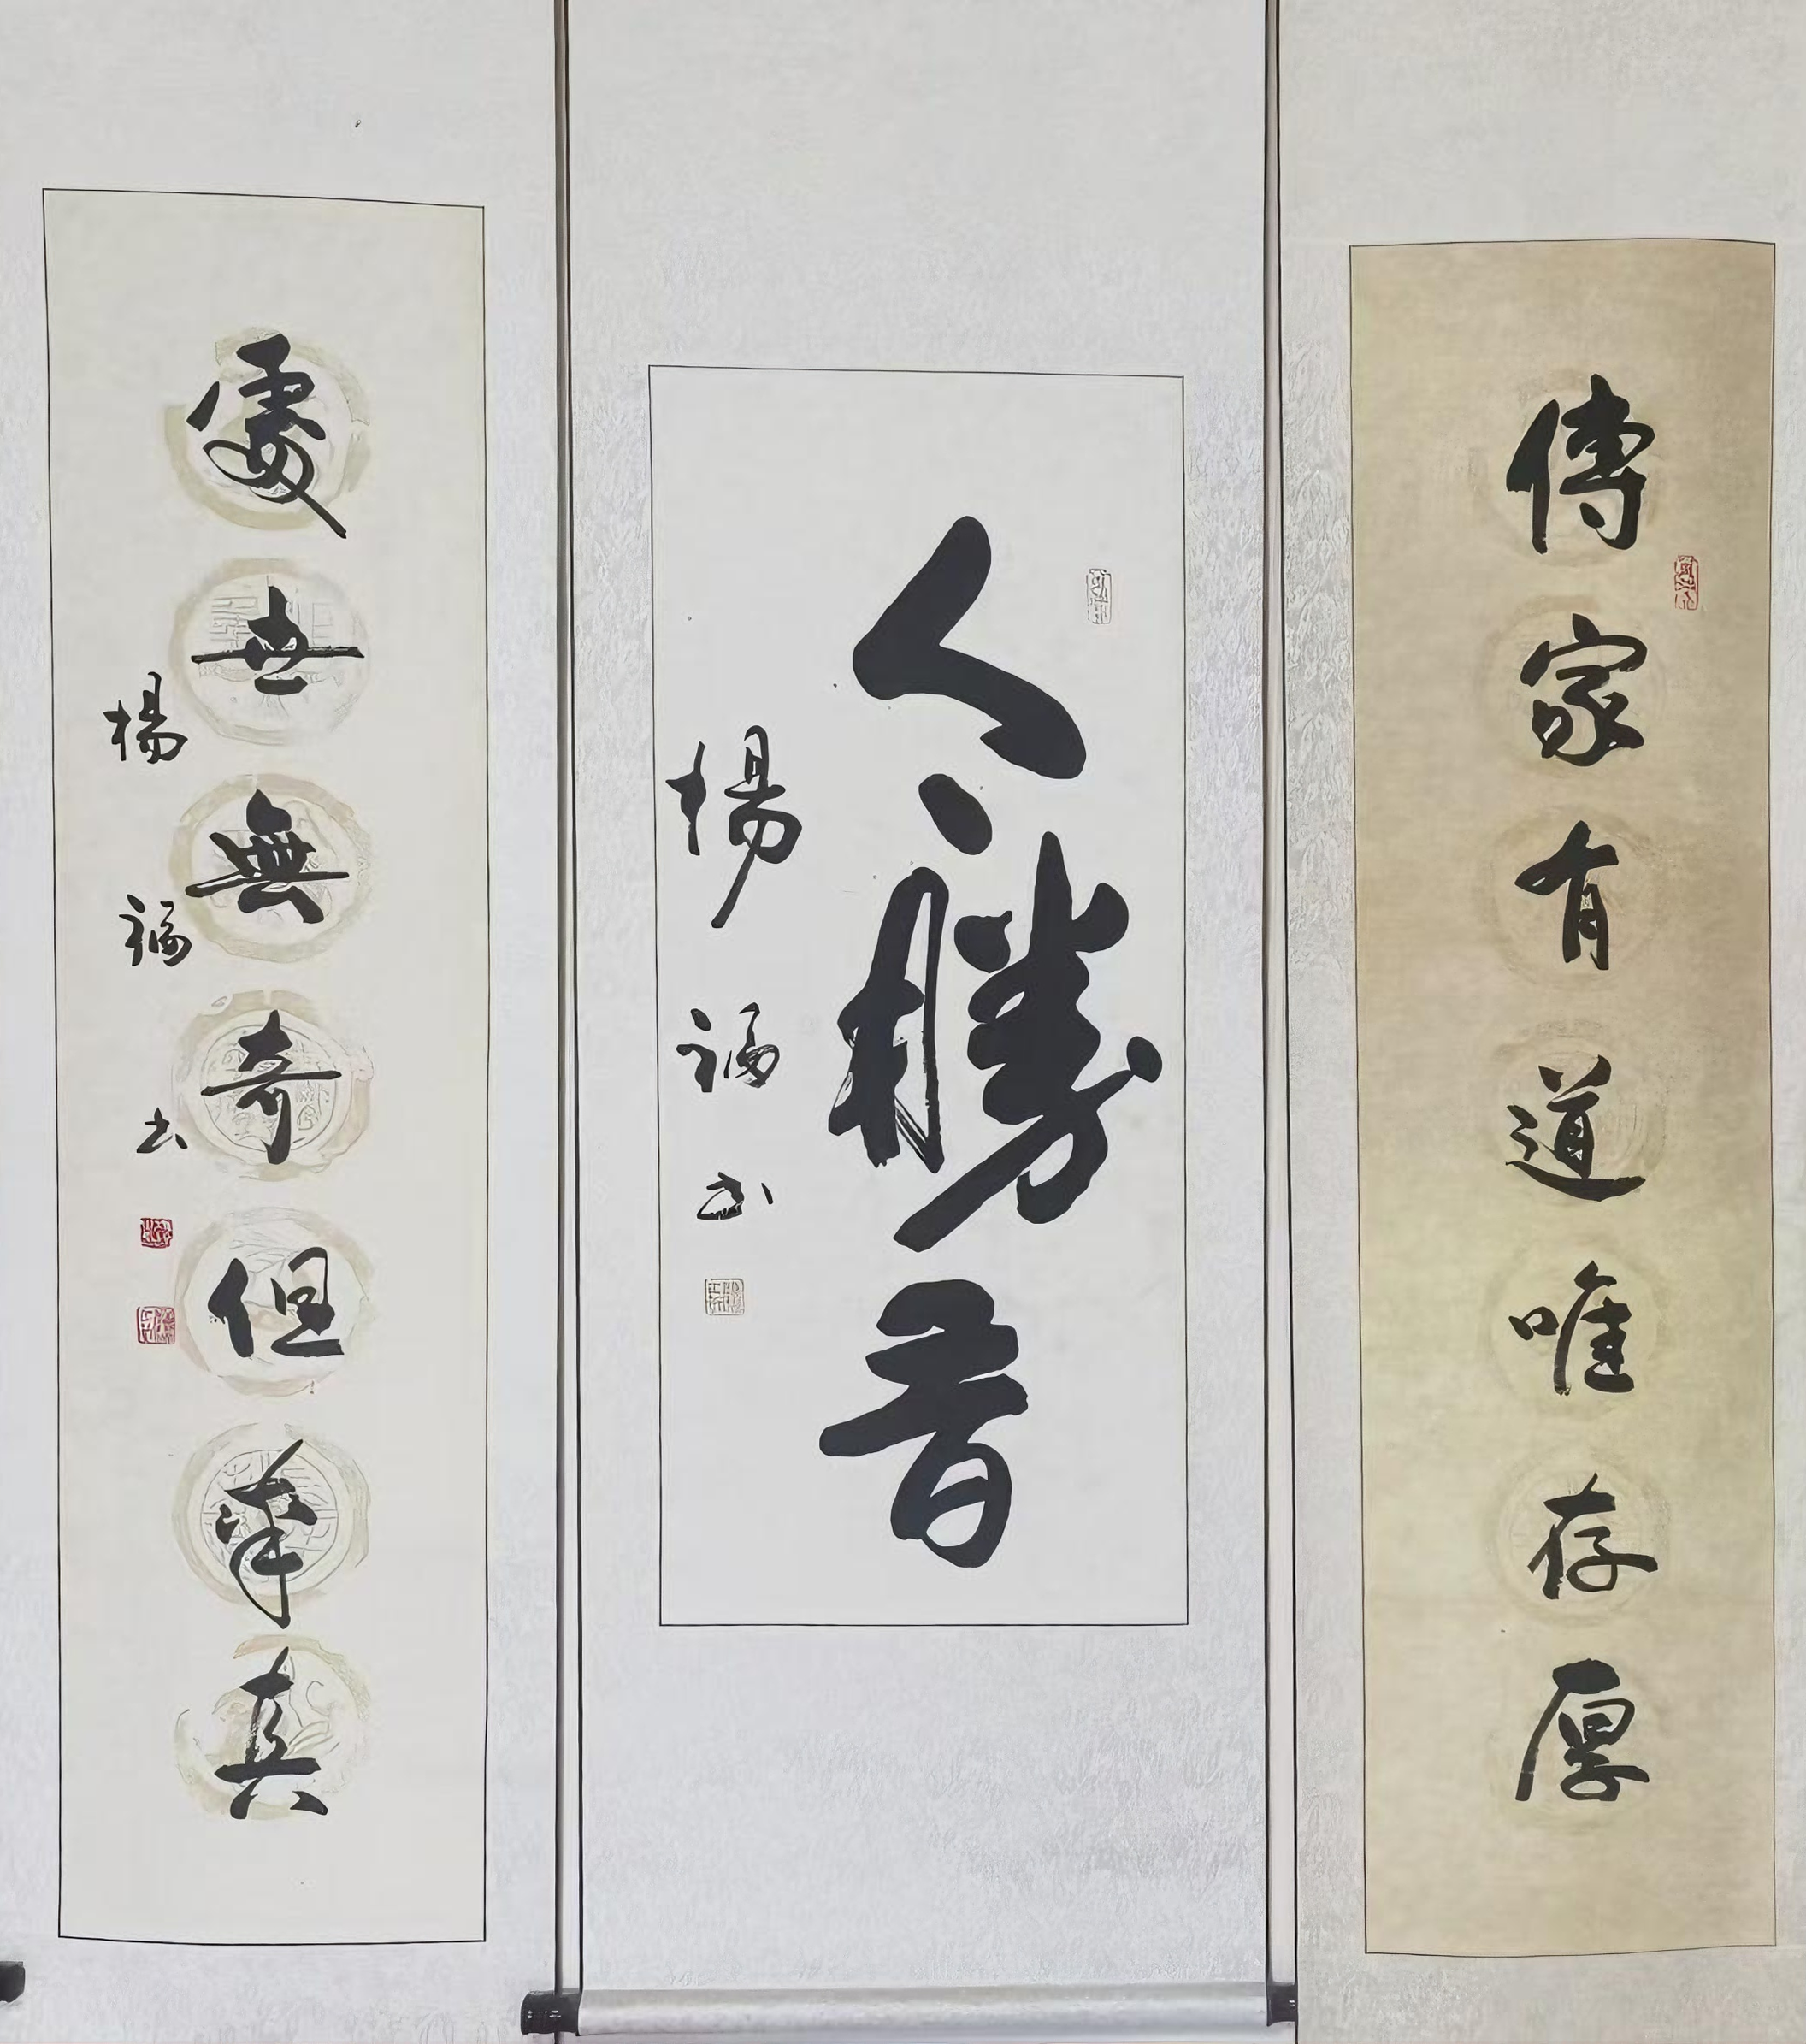 傳家有道唯存厚
今勝昔
楊福书
處世無奇但率真
楊福书